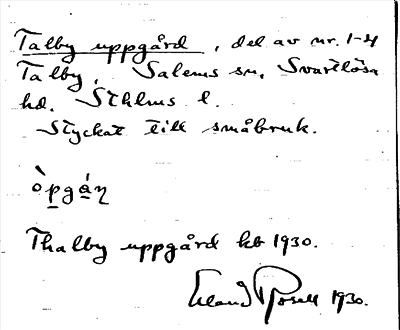 Talby uppgård, del av nr. 1-4
Talby, Salems sn, Svartlösa
hd. Sthlms l.
Styckat till småbruk.
òpgáɳ
Thalby uppgård kb 1930.
Erland Rosell 1930.